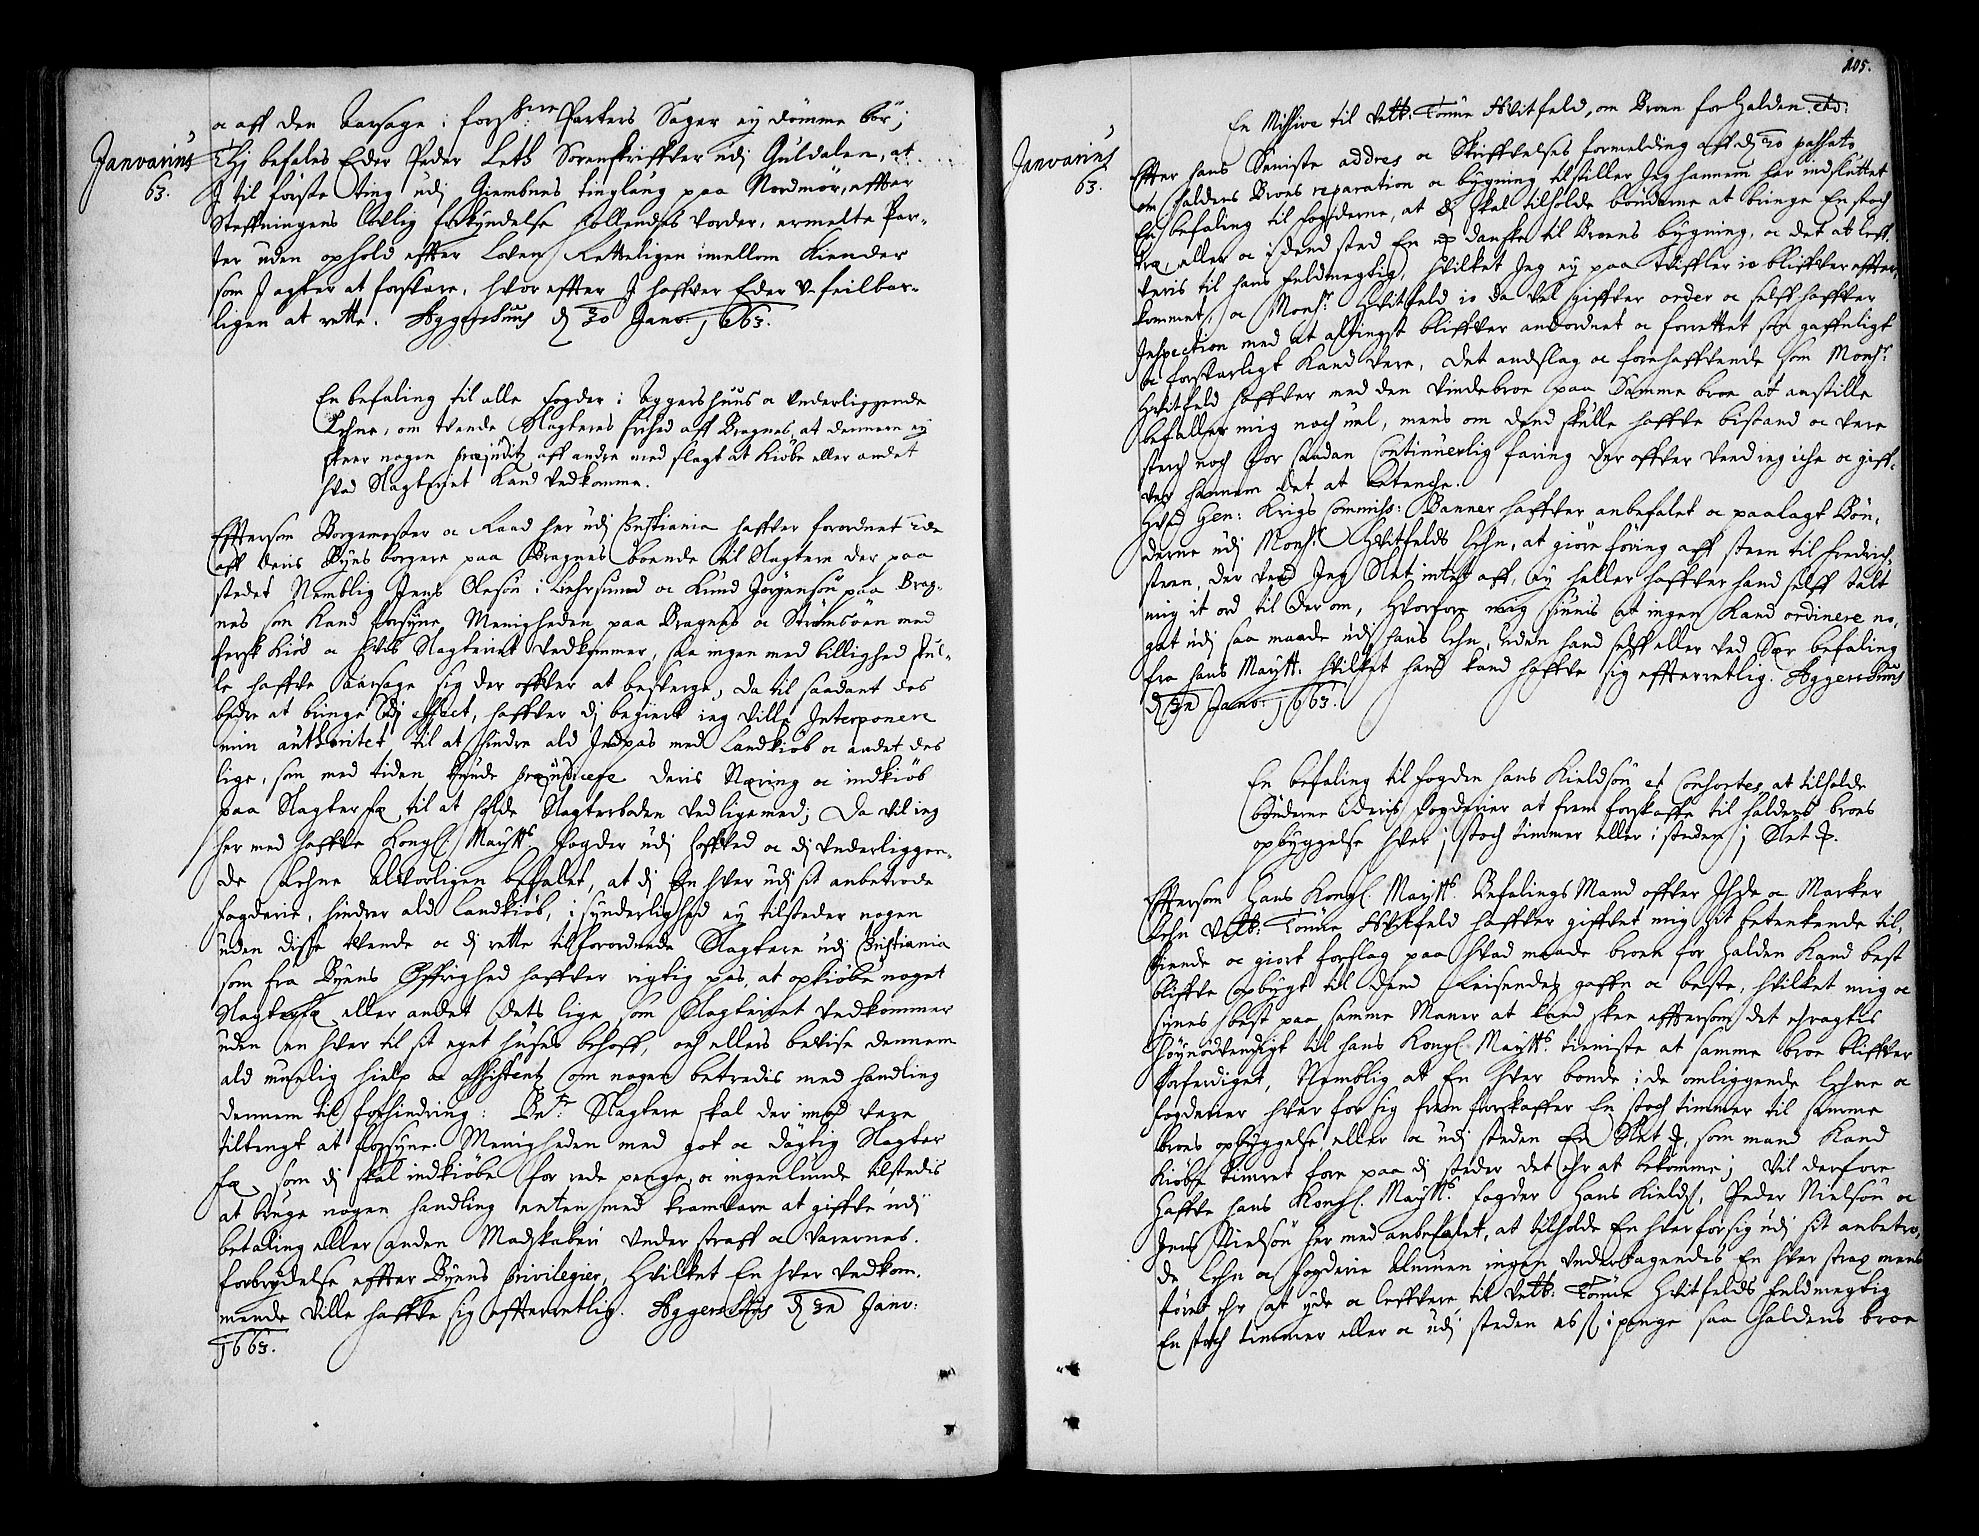 Janvarius
63.
oc aff den Aarsage i forschr:ne Parters Sager ey dömme bör;
Thj befales Eder Peder Leth Sorenskriffver udj Guldalen, at
I til förste Ting udj Giembnes tinglaug paa Nordmör, effter
Steffningens lovlig forkyndelse hollendes vorder, ermelte Par-
ter uden ophold effter Loven Retteligen imellom Kiender
som I agter at forsvare, hvor effter I haffver Eder v-feilbar-
ligen at rette. Aggershuus d 30 Janv: 1663.
En befaling til alle fogder i Aggershuus oc underliggende
Lehne, om tvende Slagteres frihed aff Bragnes, at dennem ey
skeer nogen præjuditz aff andre med slagt at Kiöbe eller andet
hvad Slagteriet Kand vedkomme.
Efftersom Borgemester oc Raad her udj Christiania haffver forordnet 2de
aff deris Byns borgere paa Bragnes boende til Slagtere der paa
stedet Nemblig Jens Olesön i Liehrsund oc Knud Jörgensön paa Brag-
nes som Kand forsyne Menigheden paa Bragnes oc Strömsöen med
fersk Kiöd oc hvis Slagteriet vedkommer, saa ingen med billighed skul-
le haffve Aarsage sig der offver at besverge, da til saadant des
bedre at bringe udj effect, haffver dj begiert ieg ville Interponere
min authoritet, til at hindre ald Indpas med Landkiöb oc andet des
lige, som med tiden kunde præjudicere deris Næring oc indkiöb
paa Slagterfæ til at holde Slagterboden ved lige med; Da vil ieg
her med haffve Kongl: Maytts fogder udj hoffved oc dj underliggen-
de Lehne Alvorligen befalet, at dj En hver udj sit anbetrode
fogderie, hindrer ald Landkiöb, i synderlighed ey tilsteder nogen
uden disse tvende oc dj rette tilforordnede Slagtere udj Christiania
som fra Byens Öffrighed haffver rigtig pas, at opkiöbe noget
Slagterfæ eller andet dets lige som Slagteriet vedkommer
uden en hver til sit eget huuses behoff, och ellers bevise dennem
ald muelig hielp oc assistentz om nogen betredis med handling
dennem til forhindring: Bete Slagtere skal der imod være
tiltengt at forsyne Menigheden med got oc dögtig Slagter
fæ, som dj skal indkiöbe for rede penge, oc ingenlunde tilstedis
at bruge nogen handling enten med kramvare at giffve udj
betaling eller anden Madskaberi under straff oc varernes
forbrydelse effter Byens privilegier, Hvilket En hver vedkom-
mende ville haffve sig efftterretlig. Aggershuus d 3n Janv:
1663.
105.
Janvarius
63.
En Missive til Velb: Tönne Hvitfeld, om Broen for Halden etc:
Effter hans Seniste addres oc Skriffvelses formelding aff d 20 passato
om Haldens Broes reparation oc bygning tilstiller Jeg hannem her indsluttet
En befaling til fogderne, at dj skal tilholde bönderne at bringe En stoch
træ, eller oc i dend sted En ort danske til Broens bygning, oc det at leff-
veris til hans fuldmegtig, hvilket Jeg ey paa tviffler io bliffver effter-
kommet, oc Monsr Hvitfeld io da vel giffver order oc selff haffver
Inspection med at altingst bliffver anordnet oc forrettet som gaffnligt
oc forsvarligt Kand være, det andslag oc forehaffvende som Monsr
Hvitfeld haffver med den vindebroe paa Samme broe at anstille
befaller mig noch vel, mens om dend skulle haffve bistand oc være
sterch noch for saadan Continuerlig faring der offver veed ieg iche oc giff-
ver hannem det at betenche.
Hvad Gen: Krigs Commiss: Banner haffver anbefalet oc paalagt Bön-
derne udj Monsr Hvitfelds Lehn, at giöre föring aff steen til Fredrich
steen, der veed Jeg Slet intet aff, ey heller haffver hand selff talt
mig it ord til der om, Hvorfore mig siunis at ingen Kand ordinere no-
get udj saa maade udj hans Lehn, uden hand selff eller ved Sær befaling
fra hans Maytt: hvilket hand kand haffve sig effterretlig. Aggershuus
d 3n Janv: 1663.
En befaling til fogden Hans Kieldsön et Consortes, at tilholde
bönderne i deris fogderier at frem forskaffe til Haldens broes
opbyggelse hver j stoch timmer eller i steden j Slet D.
Efftersom Hans Kongl: Maytts Befalings Mand offver Ihde oc Marker
Lehn Velb: Tönne Hvitfeld haffver giffvet mig sit betenkende til-
kiende oc giort forslag paa hvad maade broen for Halden Kand best
bliffve opbygt til dend Reisendes gaffn oc beste, hvilket mig oc
synes best paa samme Maner at kand skee efftersom det eragtes
höynödvendigt til hans Kongl: Maytts tieniste at samme broe bliffver
forferdiget, Nemblig at En hver bonde i de omliggende Lehne oc
fogderier hver for sig frem forskaffer En stoch timmer til samme
broes opbyggelse eller oc udj steden En Slet D, som mand Kand
Kiöbe timret fore paa dj steder det ehr at bekomme; Vil derfore
haffve hans Kongl: Maytts fogder Hans Kields: Peder Nielsön oc
Jens Nielsön her med anbefalet, at tilholde En hver for sig udj sit anbetro-
de Lehn oc fogderie Almuen ingen undertagendes En hver strax mens
föret ehr at yde oc leffvere til Velb: Tönne Hvitfelds fuldmegtig
En stoch timmer eller oc udj steden i penge saa Haldens broe